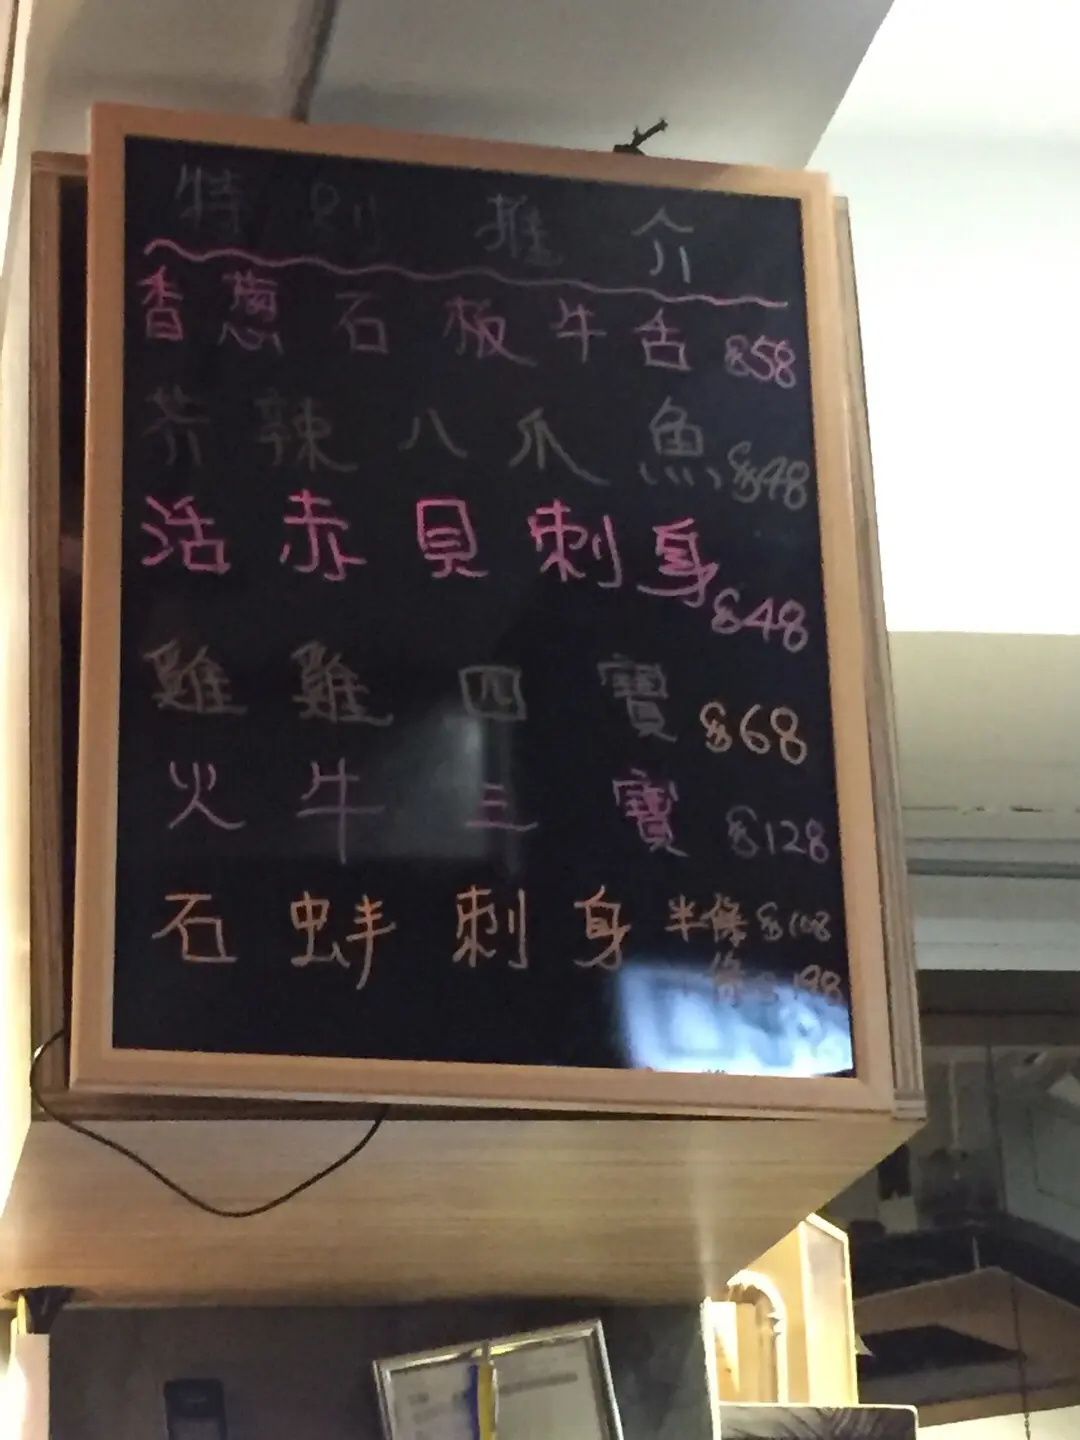 特別推介
香蔥石板牛舌 $58
芥辣八爪魚 $48
活赤貝刺身 $48
雞雞四寶 $68
火牛三寶 $128
石蚌刺身 半條 $108
條 $198